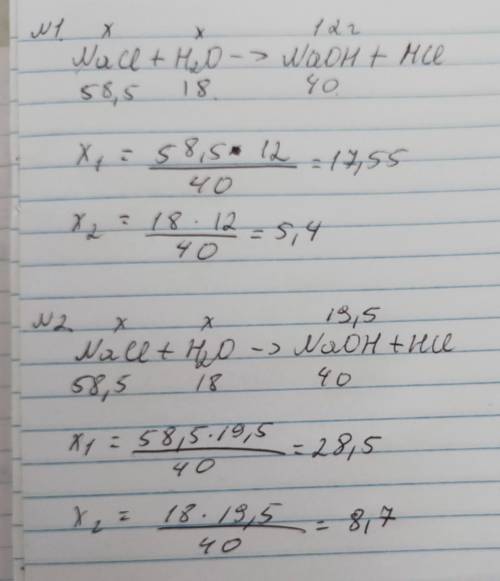 №1. x x 12г
NaCl + H₂O -> NaOH + HCl
58,5 18. 40.
x₁ = 58,5 · 12 / 40 = 17,55
x₂ = 18 · 12 / 40 = 5,4
№2. x x 19,5
NaCl + H₂O -> NaOH + HCl
58,5 18 40
x₁ = 58,5 · 19,5 / 40 = 28,5
x₂ = 18 · 19,5 / 40 = 8,7